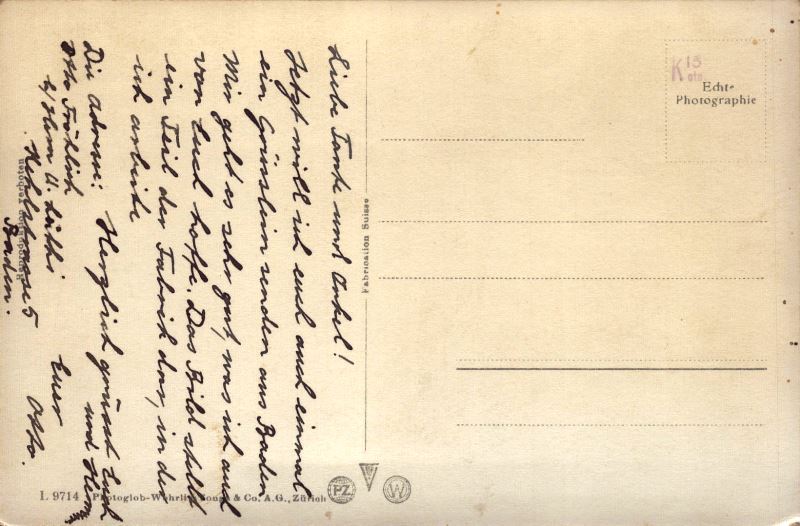 Liebe Tante und Onkel!
Jetzt will ich euch auch einmal
ein Grüsslein senden aus Baden
Mir geht es sehr gut, was ich auch
von Euch hoffe. Das Bild stellt
ein Teil der Fabrik dar, in der
ich arbeite
Herzlich grüsst Euch
und
Euer
Otto.
Die Adresse:
Otto Fröhlich
b/ Herrn U. Lüthi
5
Baden.
Reproduktion verboten
Fabrication Suisse
K 15
Echt-
Photographie
I. 9714 Photoglob-Wehrli & Co. A.G., Zürich
PZ W